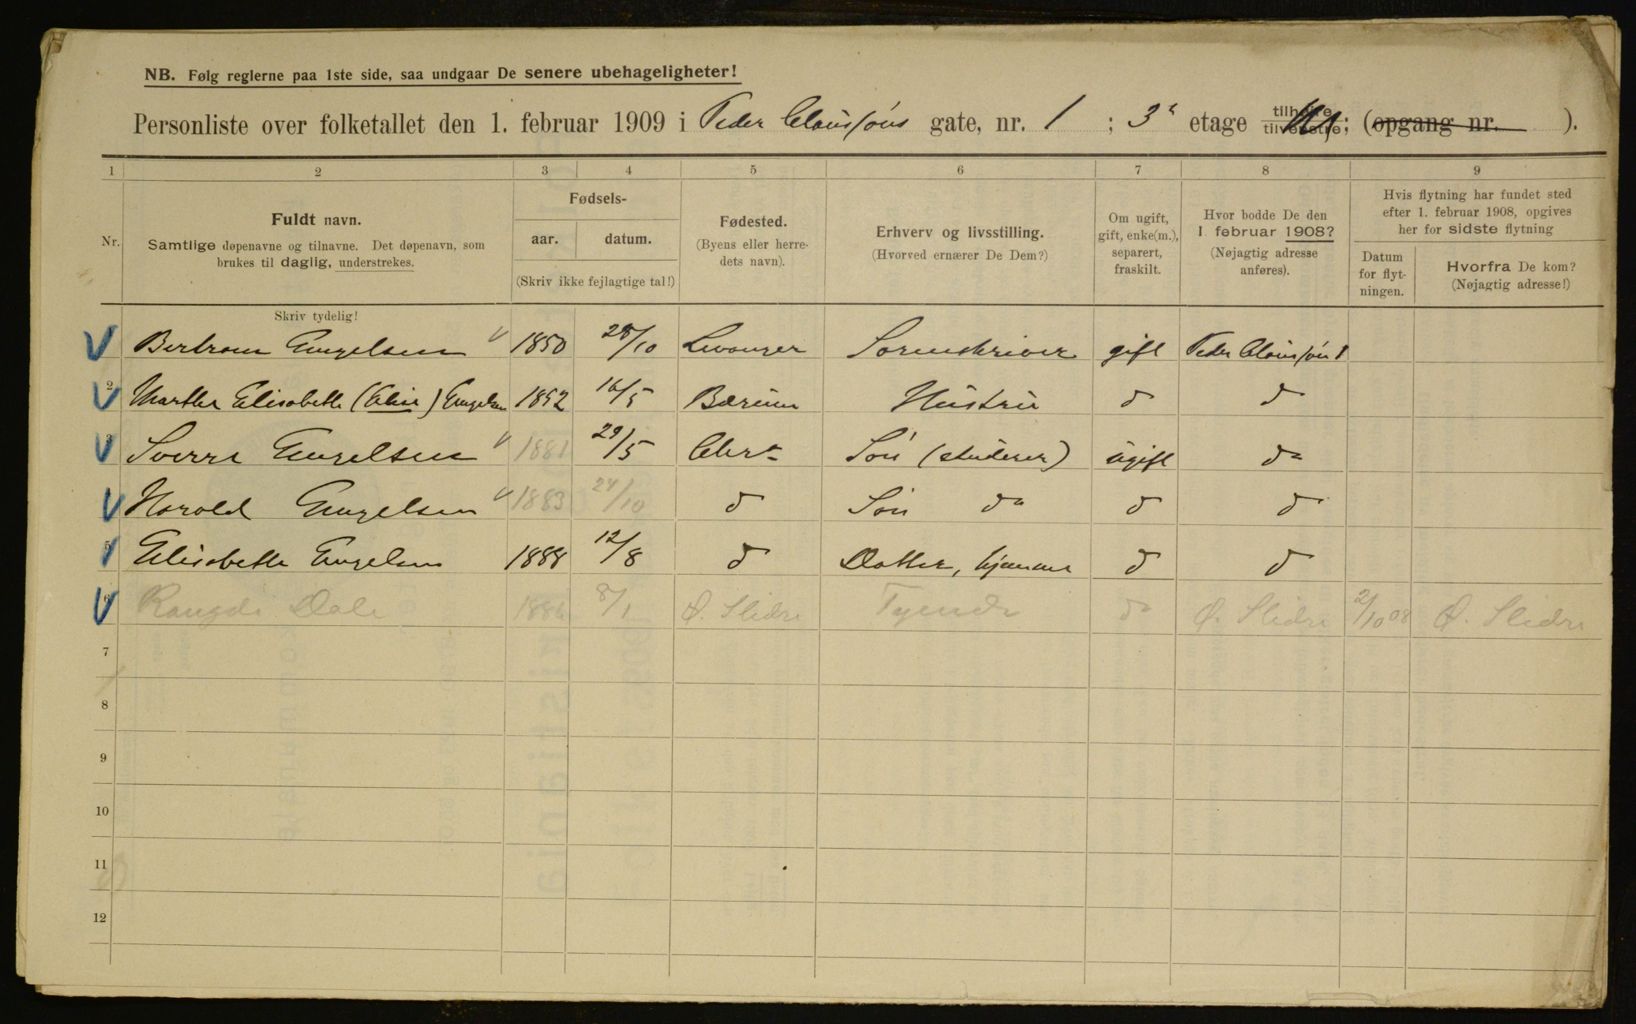 NB. Følg reglerne paa 1ste side, saa undgaar De senere ubehageligheter!
Personliste over folketallet den 1. februar 1909 i Peder Claussøns gate, nr. 1 ; 3 etage tilhøire tilvenstre; (opgang nr. ).
1 2 3 4 5 6 7 8 9
Nr.
Fuldt navn.
Samtlige døpenavne og tilnavne. Det døpenavn, som
brukes til daglig, understrekes.
Skriv tydelig!
Fødsels-
aar. datum.
(Skriv ikke fejlagtige tal!)
Fødested.
(Byens eller herre-
dets navn).
Erhverv og livsstilling.
(Hvorved ernærer De Dem?)
Om ugift,
gift, enke(m.),
separert,
fraskilt.
Hvor bodde De den
1. februar 1908?
(Nøjagtig adresse
anføres).
Hvis flytning har fundet sted
efter 1. februar 1908, opgives
her for sidste flytning
Datum
for flyt-
ningen.
Hvorfra De kom?
(Nøjagtig adresse!)
Bertram Engelsen 1850 28/10 Levanger Sorenskriver gift Peder Claussøns 1
2 Marthe Elisabeth (Elise) Engelsen 1852 16/5 Bærum Hustru do do
3 Sverre Engelsen 1881 29/5 Chr.a Søn (studerer) ugift do
Harald Engelsen 1883 24/10 do Søn do do do
5 Elisabeth Engelsen 1888 12/8 do Datter, hjemme do do
6 Rangdi Dale 1886 8/1 Ø. Slidre Tyende do Ø. Slidre 2/10 08 Ø. Slidre
7
8
9
10
11
12